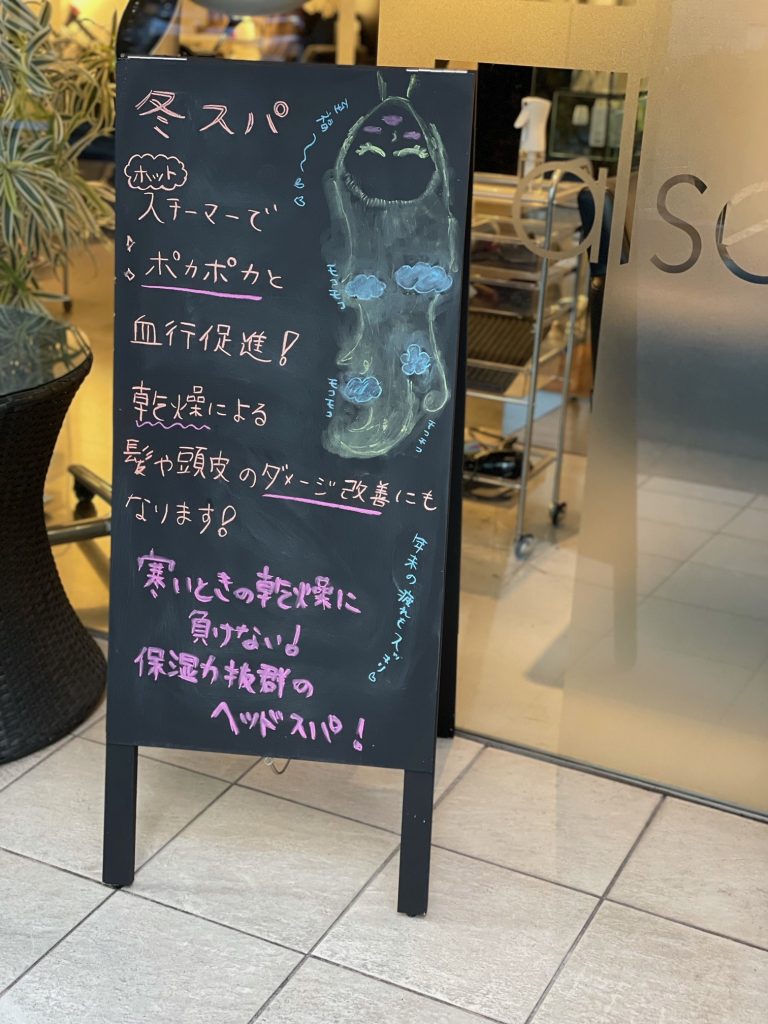 冬スパ
ホット
スチーマーで
ポカポカと
血行促進!
乾燥による
髪や頭皮のダメージ改善にも
なります!
寒いときの乾燥に
負けない!
保湿力抜群の
ヘッドスパ!
モコモコ
モコモコ
モコモコ
年末の疲れもスッキリ